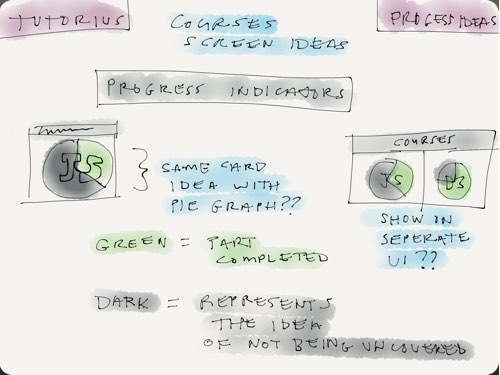 TUTORIUS
COURSES
SCREEN IDEAS
PROCESS IDEAS
PROGRESS INDICATORS
JS
SAME CARD
IDEA WITH
PIE GRAPH??
COURSES
JS
SHOW IN
SEPERATE
UI??
GREEN = PART
COMPLETED
DARK = REPRESENTS
THE IDEA
OF NOT BEING UNCOVERED